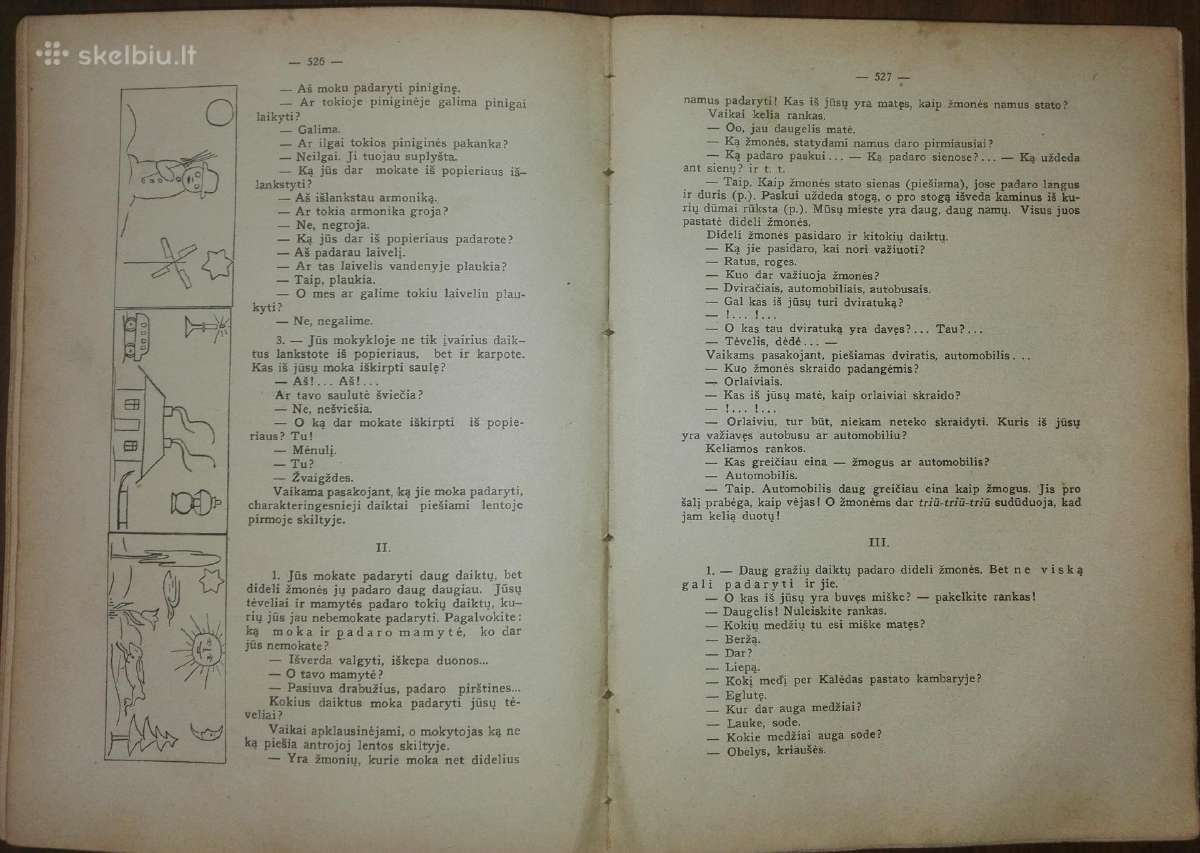 skelbiu.lt
— 526 —
— Aš moku padaryti piniginę.
— Ar tokioje piniginėje galima pinigai
laikyti?
— Galima.
— Ar ilgai tokios piniginės pakanka?
— Neilgai. Ji tuojau suplyšta.
— Ką jūs dar mokate iš popieriaus iš-
lankstyti?
— Aš išlankstau armoniką.
— Ar tokia armonika groja?
— Ne, negroja.
— Ką jūs dar iš popieriaus padarote?
— Aš padarau laivelį.
— Ar tas laivelis vandenyje plaukia?
— Taip, plaukia.
— O mes ar galime tokiu laiveliu plau-
kyti?
— Ne, negalime.
3. — Jūs mokykloje ne tik įvairius daik-
tus lankstote iš popieriaus, bet ir karpote.
Kas iš jūsų moka iškirpti saulę?
— Aš!... Aš!...
Ar tavo saulutė šviečia?
— Ne, nešviešia.
— O ką dar mokate iškirpti iš popie-
riaus? Tu!
— Mėnulį.
— Tu?
— Žvaigždes.
Vaikama pasakojant, ką jie moka padaryti,
charakteringesnieji daiktai piešiami lentoje
pirmoje skiltyje.
II.
1. Jūs mokate padaryti daug daiktų, bet
dideli žmonės jų padaro daug daugiau. Jūsų
tėveliai ir mamytės padaro tokių daiktų, ku-
rių jūs jau nebemokate padaryti. Pagalvokite:
ką moka ir padaro mamytė, ko dar
jūs nemokate?
— Išverda valgyti, iškepa duonos...
— O tavo mamytė?
— Pasiuva drabužius, padaro pirštines...
Kokius daiktus moka padaryti jūsų tė-
veliai?
Vaikai apklausinėjami, o mokytojas ką ne
ką piešia antrojoj lentos skiltyje.
— Yra žmonių, kurie moka net didelius
— 527 —
namus padaryti! Kas iš jūsų yra matęs, kaip žmonės namus stato?
Vaikai kelia rankas.
— Oo, jau daugelis matė.
— Ką žmonės, statydami namus daro pirmiausiai?
— Ką padaro paskui... — Ką padaro sienose?... — Ką uždeda
ant sienų? ir t. t.
— Taip. Kaip žmonės stato sienas (piešiama), jose padaro langus
ir duris (p.). Paskui uždeda stogą, o pro stogą išveda kaminus iš ku-
rių dūmai rūksta (p.). Mūsų mieste yra daug, daug namų. Visus juos
pastatė dideli žmonės.
Dideli žmonės pasidaro ir kitokių daiktų.
— Ką jie pasidaro, kai nori važiuoti?
— Ratus, roges.
— Kuo dar važiuoja žmonės?
— Dviračiais, automobiliais, autobusais.
— Gal kas iš jūsų turi dviratuką?
— !... !...
— O kas tau dviratuką yra davęs?... Tau?...
— Tėvelis, dėdė... —
Vaikams pasakojant, piešiamas dviratis, automobilis...
— Kuo žmonės skraido padangėmis?
— Orlaiviais.
— Kas iš jūsų matė, kaip orlaiviai skraido?
— !... !...
— Orlaiviu, tur būt, niekam neteko skraidyti. Kuris iš jūsų
yra važiavęs autobusu ar automobiliu?
Keliamos rankos.
— Kas greičiau eina — žmogus ar automobilis?
— Automobilis.
— Taip. Automobilis daug greičiau eina kaip žmogus. Jis pro
šalį prabėga, kaip vėjas! O žmonėms dar triū-triū-triū sudūduoja, kad
jam kelią duotų!
III.
1. — Daug gražių daiktų padaro dideli žmonės. Bet ne viską
gali padaryti ir jie.
— O kas iš jūsų yra buvęs miške? — pakelkite rankas!
— Daugelis! Nuleiskite rankas.
— Kokių medžių tu esi miške matęs?
— Beržą.
— Dar?
— Liepą.
— Kokį medį per Kalėdas pastato kambaryje?
— Eglutę.
— Kur dar auga medžiai?
— Lauke, sode.
— Kokie medžiai auga sode?
— Obelys, kriaušės.